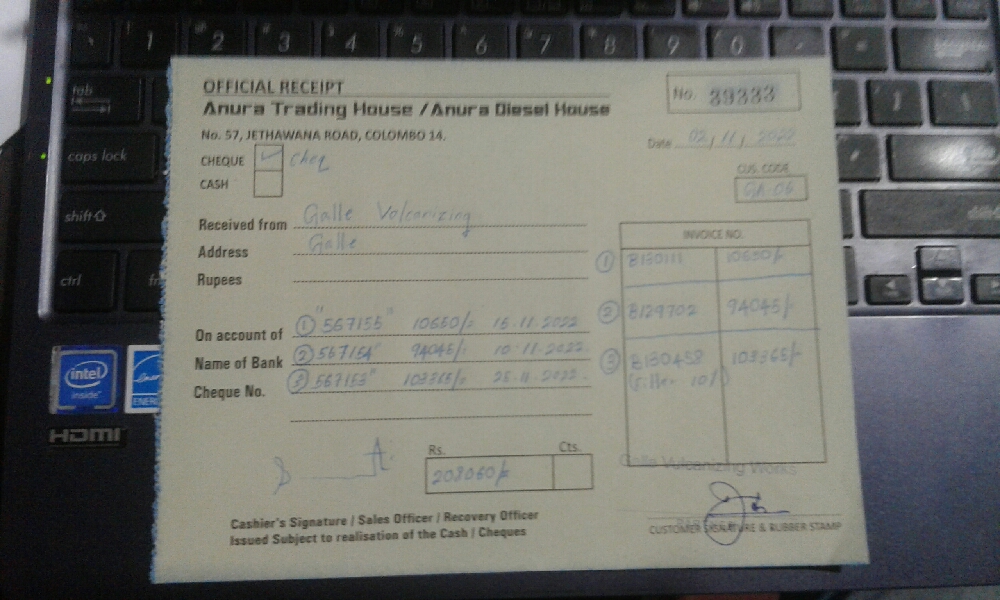 OFFICIAL RECEIPT
Anura Trading House / Anura Diesel House
No. 57, JETHAWANA ROAD, COLOMBO 14.
No. 39333
Date 02 / 11 / 2022
CHEQUE ✓ cheq
CASH
CUS. CODE
GA 06
Received from Galle Volcanizing
Address Galle
Rupees
On account of ① "567155" 10650/= 15-11-2022
Name of Bank ② 567154" 94045/= 10-11-2022
Cheque No. ③ 567153" 103365/= 25-11-2022.
INVOICE NO.
① B130111 10650/-
② B129702 94045/-
③ B130458 103365/-
(Filter 10%)
Rs. Cts.
208060/=
Galle Vulcanizing Works
Cashier's Signature / Sales Officer / Recovery Officer
Issued Subject to realisation of the Cash / Cheques
CUSTOMER SIGNATURE & RUBBER STAMP
1 2 3 4 5 6 7 8 9 0
tab
caps lock
shift
ctrl
intel
inside
HDMI